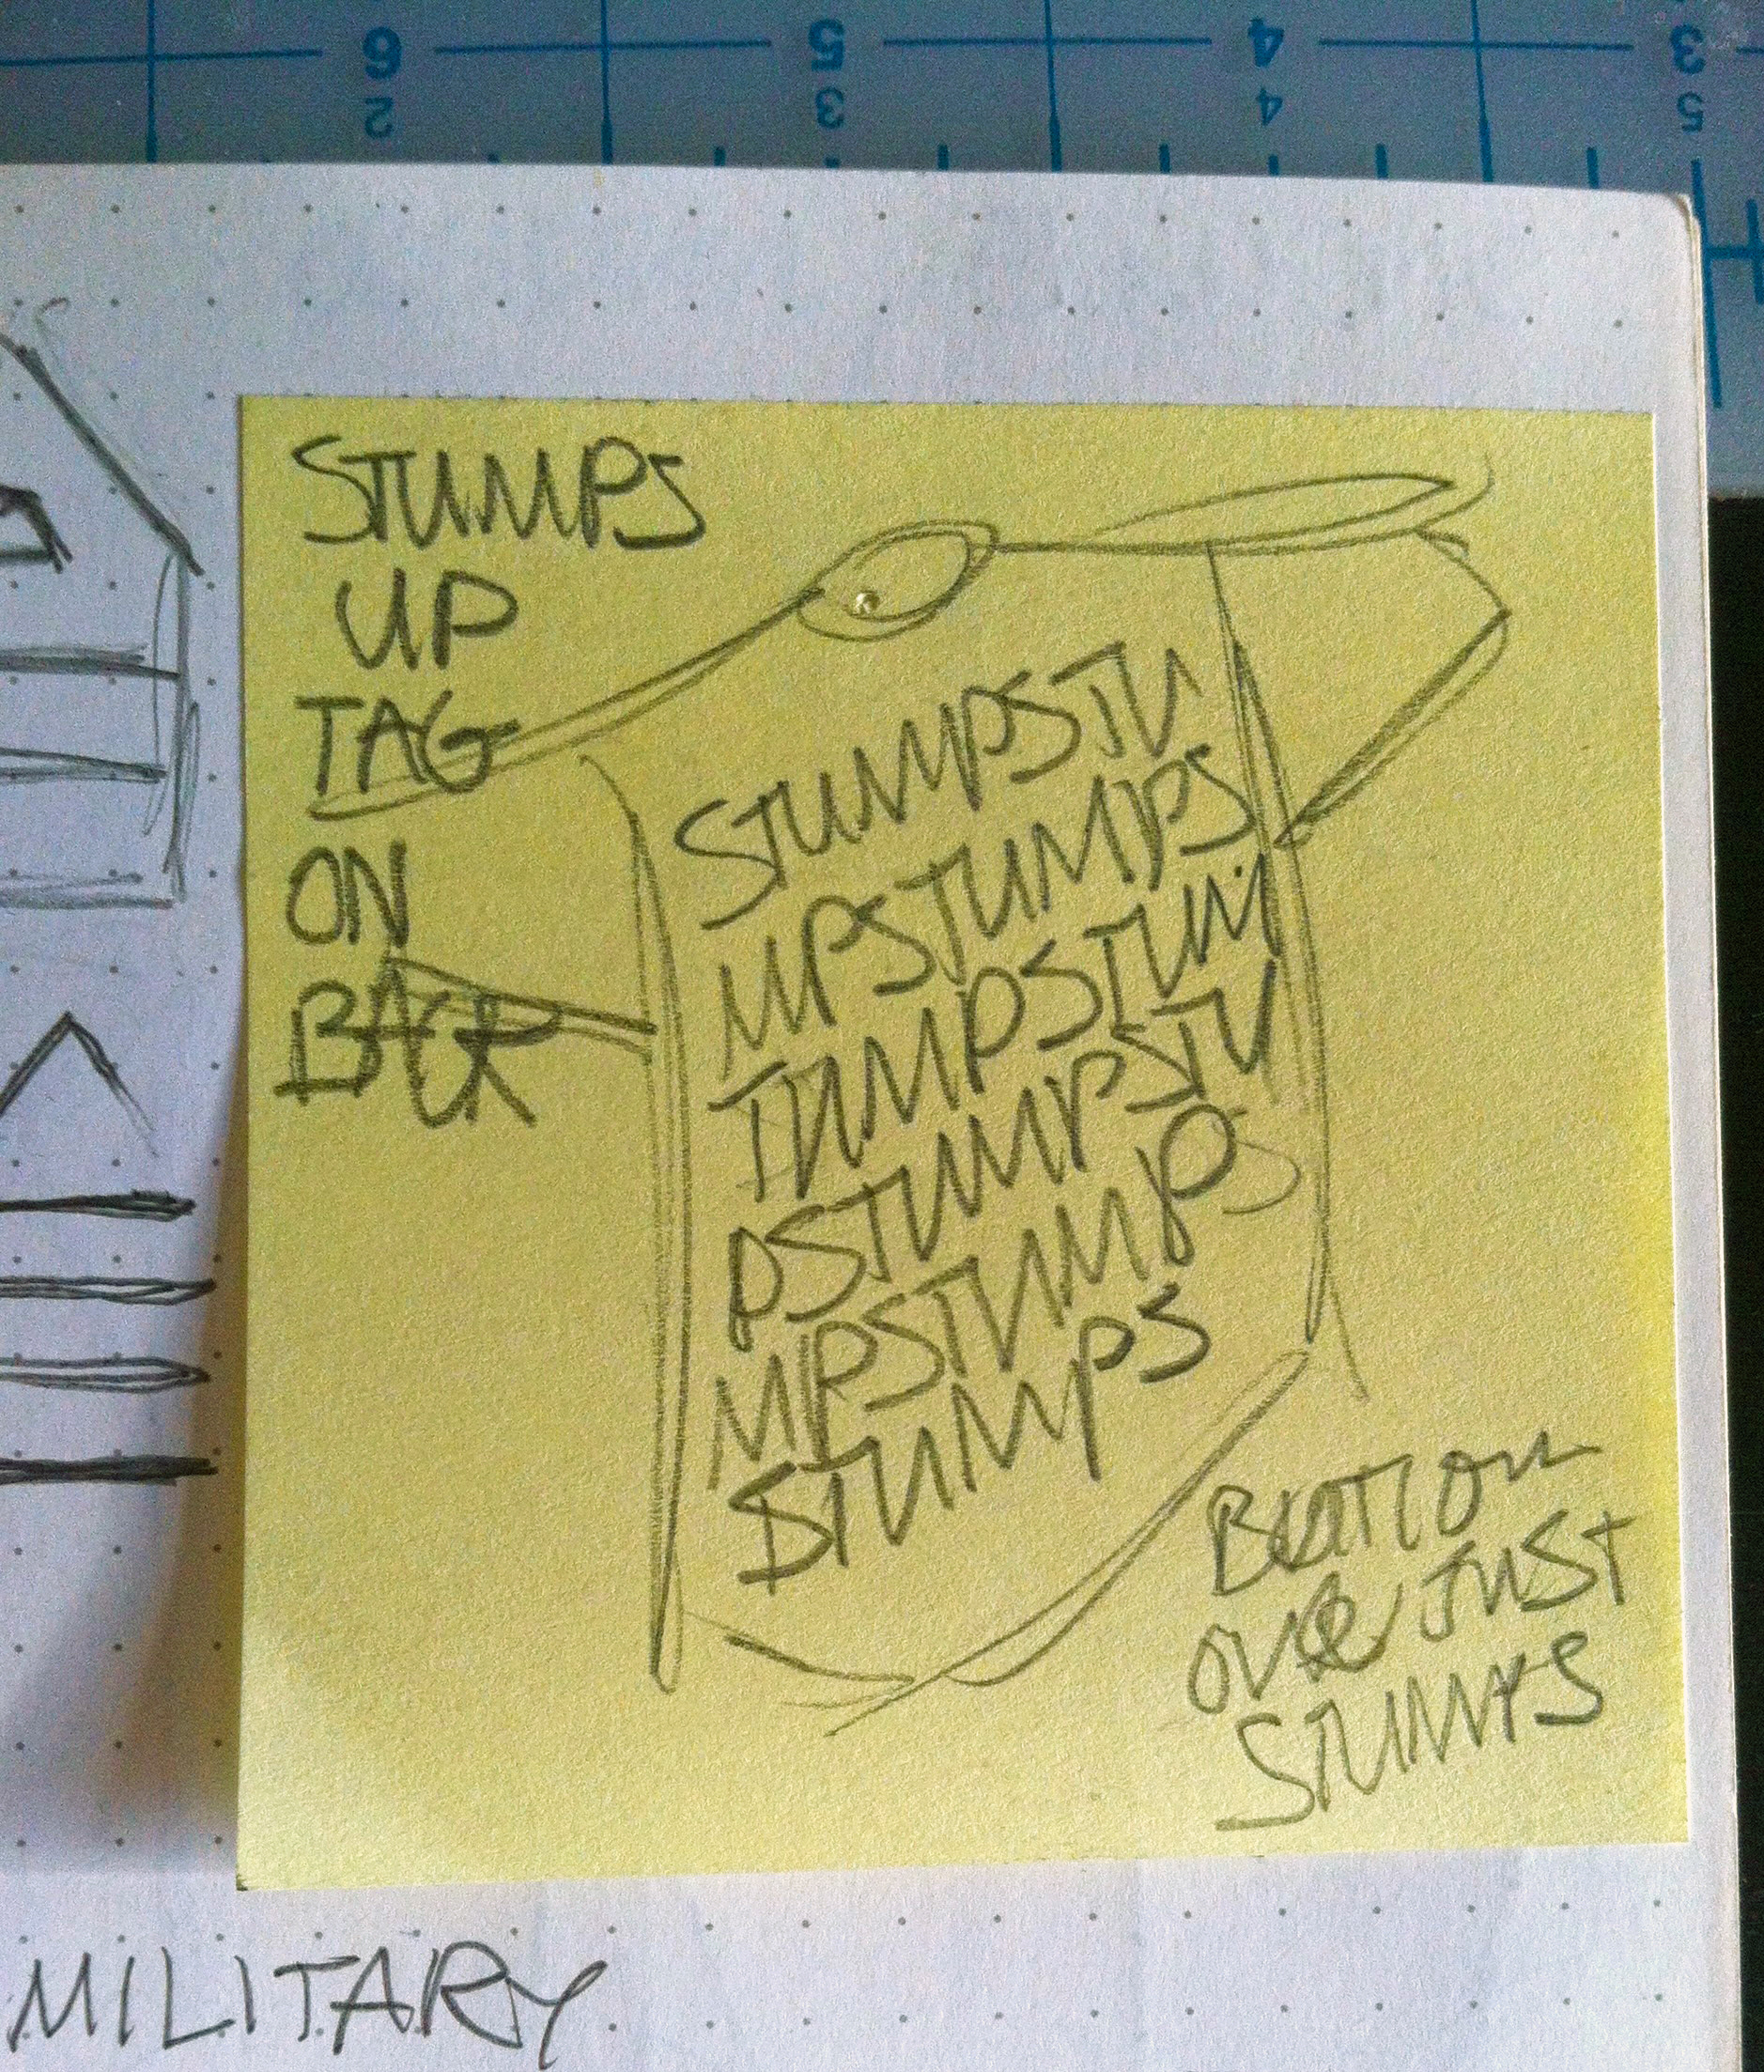 6 5 4 3
2 3 4 5
STUMPS
UP
TAG
ON
BACK
STUMPSTU
MPSTUMPS
TUMPSTUM
PSTUMPSTU
MPSTUMPS
STUMPS
BUTTON
OVER JUST
STUMPS
MILITARY